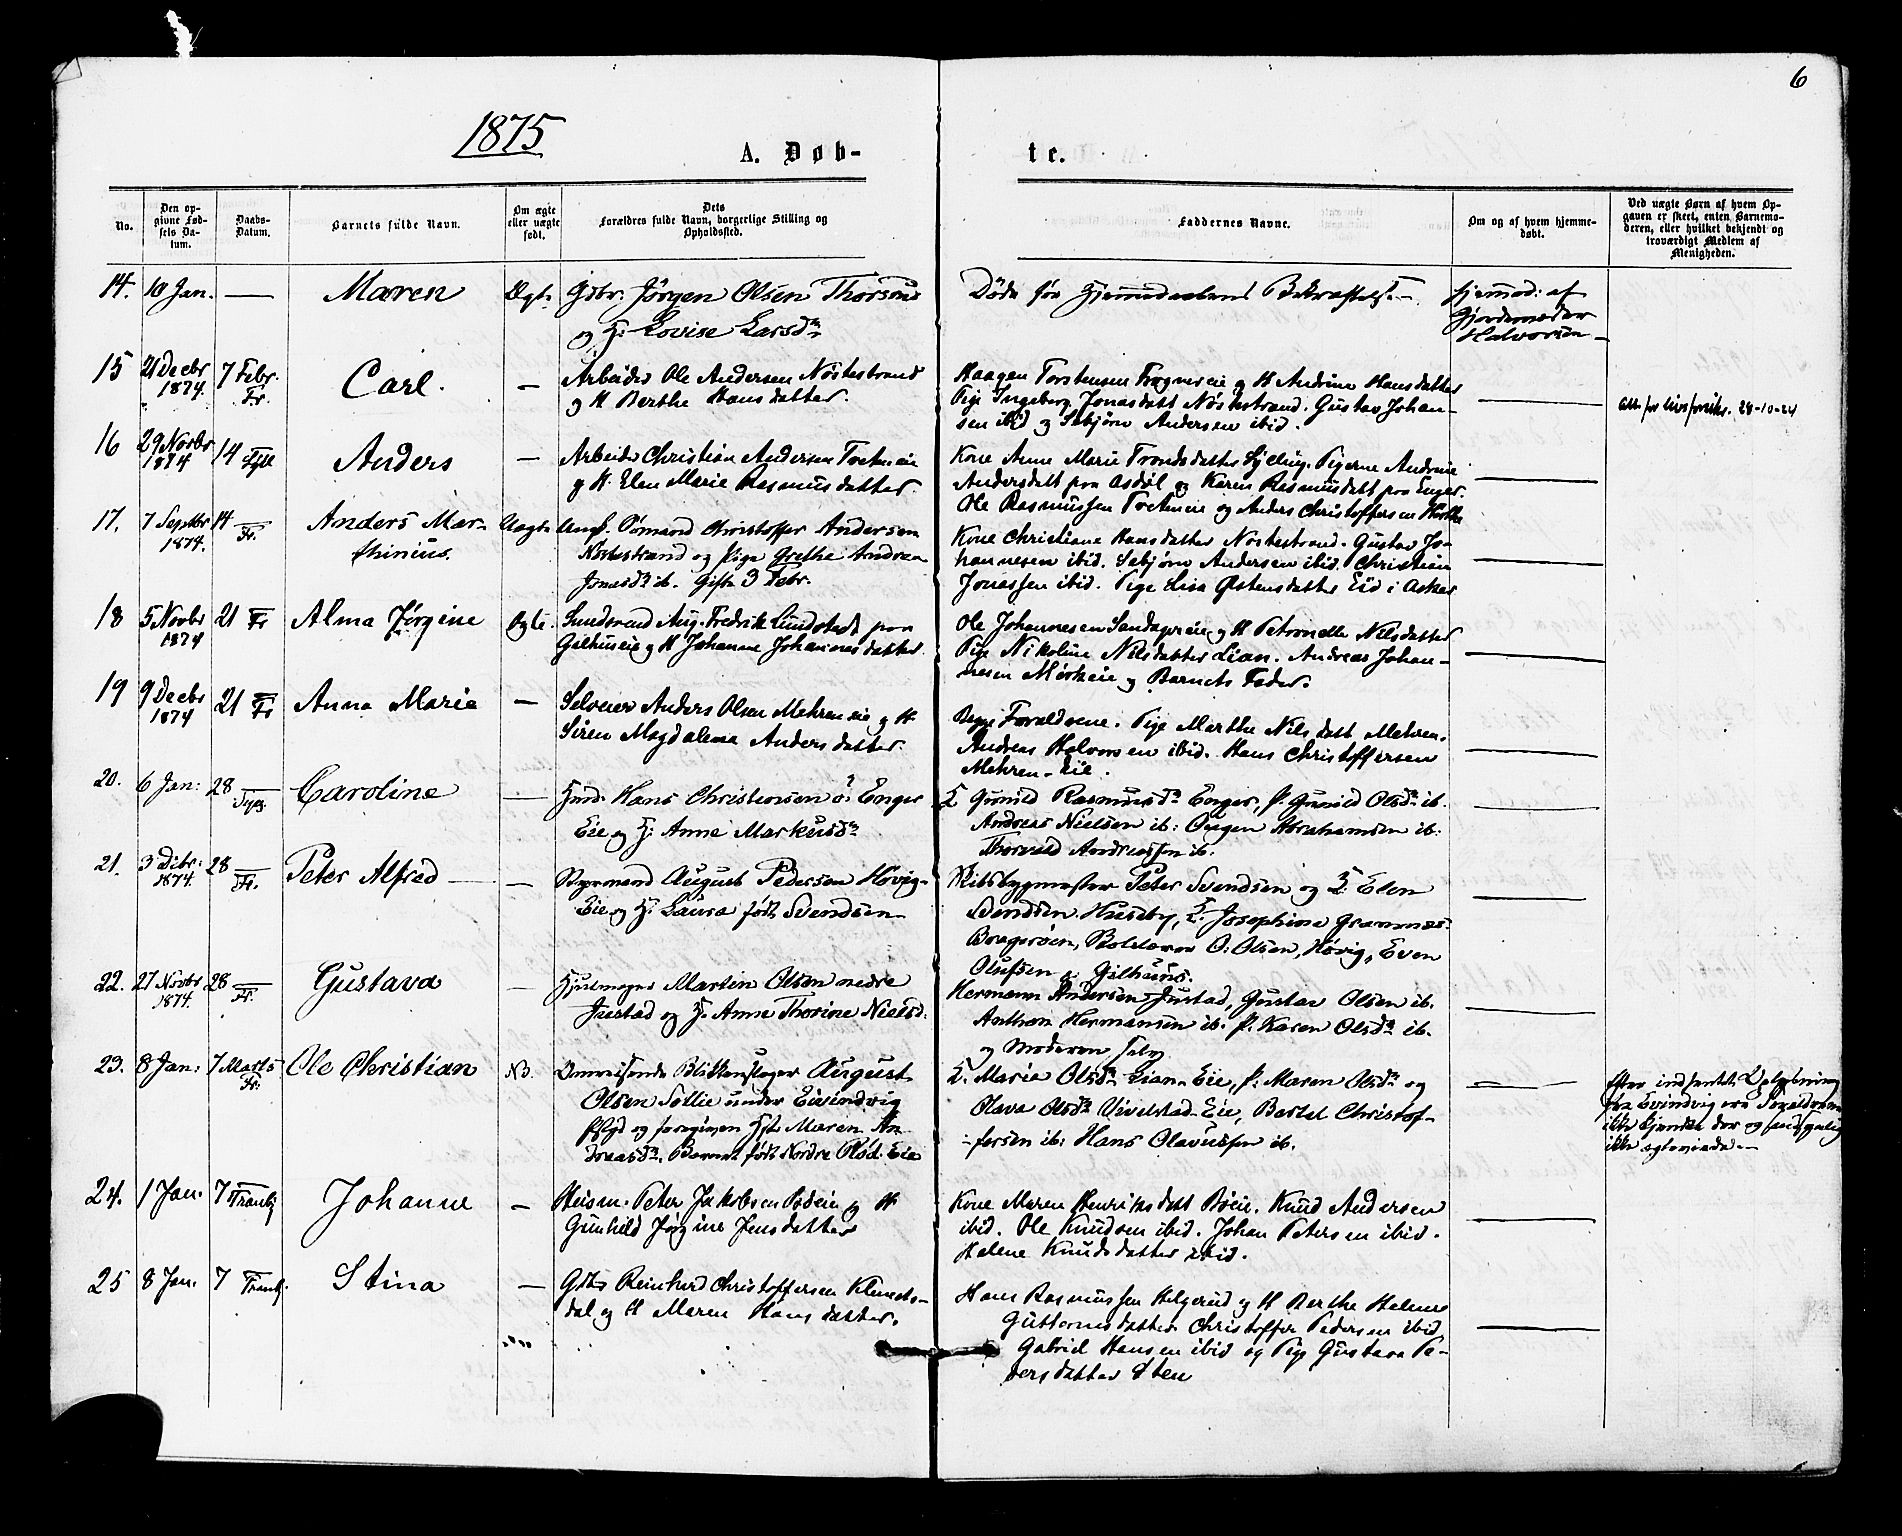 6
1875
A. Døb-
te.
No.
Den op-
givne Fød-
sels Da-
tum.
Daabs-
Datum.
Barnets fulde Navn.
Om ægte
eller uægte
født.
Dets
Forældres fulde Navn, borgerlige Stilling og
Opholdssted.
Faddernes Navne.
Om og af hvem hjemme-
døbt.
Ved uægte Børn af hvem Op-
gaven er skeet, enten Barnemo-
deren, eller hvilket bekjendt og
troværdigt Medlem af
Menigheden.
14. 10 Jan. — Maren Ægt.
Gbr. Jørgen Olsen
og H: Lovise Larsdr
Døde før Hjemmedaabens Bekræftelse
Hjemmed: af
Gjordemoder
Halvorsen
15 21 Decbr 1874. 7 Febr. Fr. Carl. —
Arbeider Ole Andersen Nøstestrand
og H Berthe Hansdatter.
Haagen Torstensen Fragnereie og H Andrine Hansdatter
Pige Ingeborg Jonasdatt Nøstestrand. Gustav Johan-
sen ibid og Sebjørn Andersen ibid.
28-10-24
16 29 Novbr 1874 14 Anders —
Arbeider Christian Andersen
og H. Elen Marie Rasmusdatter.
Kone Anne Marie Trondsdatter Sylling. Pigerne Andrine
Andersdatt paa Asdøl og Karen Rasmusdatt paa Enger.
Ole Rasmussen og Anders Christoffersen
17. 7 Septbr 1874. 14 Fr. Anders Mar-
thinius. Uægt.
Ungk. Sømand Christoffer Andersen
Nøstestrand og Pige Grethe Andrea
Jonasdr ib. Gifte 3 Febr.
Kone Christiane Hansdatter Nøstestrand. Gustav Jo-
hannesen ibid. Sebjørn Andersen ibid. Christian
Jonassen ibid. Pige Lisa Østensdatter Eid i Asker
18 5 Novbr 1874 21 Fr Alma Jørgine Ægte.
Aug. Fredrik Lundstedt paa
Gilhuseie og H Johanne Johannesdatter.
Ole Johannesen og H Petronelle Nilsdatter
Pige Nikoline Nilsdatter Lian. Andreas Johan-
nesen Mørkeie og Barnets Fader.
19 9 Decbr 1874 21 Fr Anna Marie —
Selveier Anders Olsen Mehreneie og H
Siren Magdalena Andersdatter.
Begge Forældrene. Pige Marthe Nilsdatt Mehren.
Andreas Halvorsen ibid. Hans Christoffersen
Mehren-Eie.
20. 6 Jan: 28 Caroline —
Hans Christensen Enger
Eie og H: Anne Markusdr
K Gunild Rasmusdr Enger, P. Gunild Olsdr ib.
Andreas Nielsen ib: Abrahamsen ib:
Thorvald Andreassen ib.
21. 3 Dcbr: 1874. 28 Fr. Peter Alfred —
Styrmand August Pedersen Høvig-
Eie og H: Laura født Svendsen
Skibsbygmester Peter Svendsen og K: Elen
Svendsen Huseby, K. Josephine
O: Olsen, Høvig, Even
Olufsen, Gilhuus.
22. 27 Novbr 1874. 28 Fr. Gustava —
Hjulmager Martin Olsen nedre
Justad og H. Anne Thorine Nielsd.
Hermann Andersen Justad, Gustav Olsen ib.
Anthon Hermansen ib. P. Karen Olsdr ib.
og Moderen selv
23. 8 Jan: 7 Marts Fr. Ole Christian NB.
Omreisende Blikkenslager August
Olsen Sollie under Eivindvig
Pgld og foregiven Hst. Maren An-
dreasdr. Barnet født Nordre Eie
K. Maria Olsdr Lian-Eie, P. Maren Olsdr og
Olava Olsdr Vivelstad-Eie, Bertel Christof-
fersen ib: Hans Olavussen ib.
Efter indhentet Oplysning
fra Evindvig ere Forældrene
ikke kjendte der og
ikke ægteviede.
24. 1 Jan. 7 Tranby Johanne —
Husm. Peter Jakobsen og H
Gunhild Jørgine Jensdatter
Kone Maren Henriksdatt Bøeie. Knud Andersen
ibid. Ole Knudsen ibid. Johan Petersen ibid.
Helene Knudsdatter ibid.
25 8 Jan. 7 Tranby. Stina —
Gbr Reinhard Christoffersen Klemets-
dal og H Maren Hansdatter.
Hans Rasmussen Helgerud og H Berthe Helene
Guttormsdatter Christoffer Pedersen ibid,
Gabriel Hansen ibid og Pige Gustava Pe-
dersdatter Sten